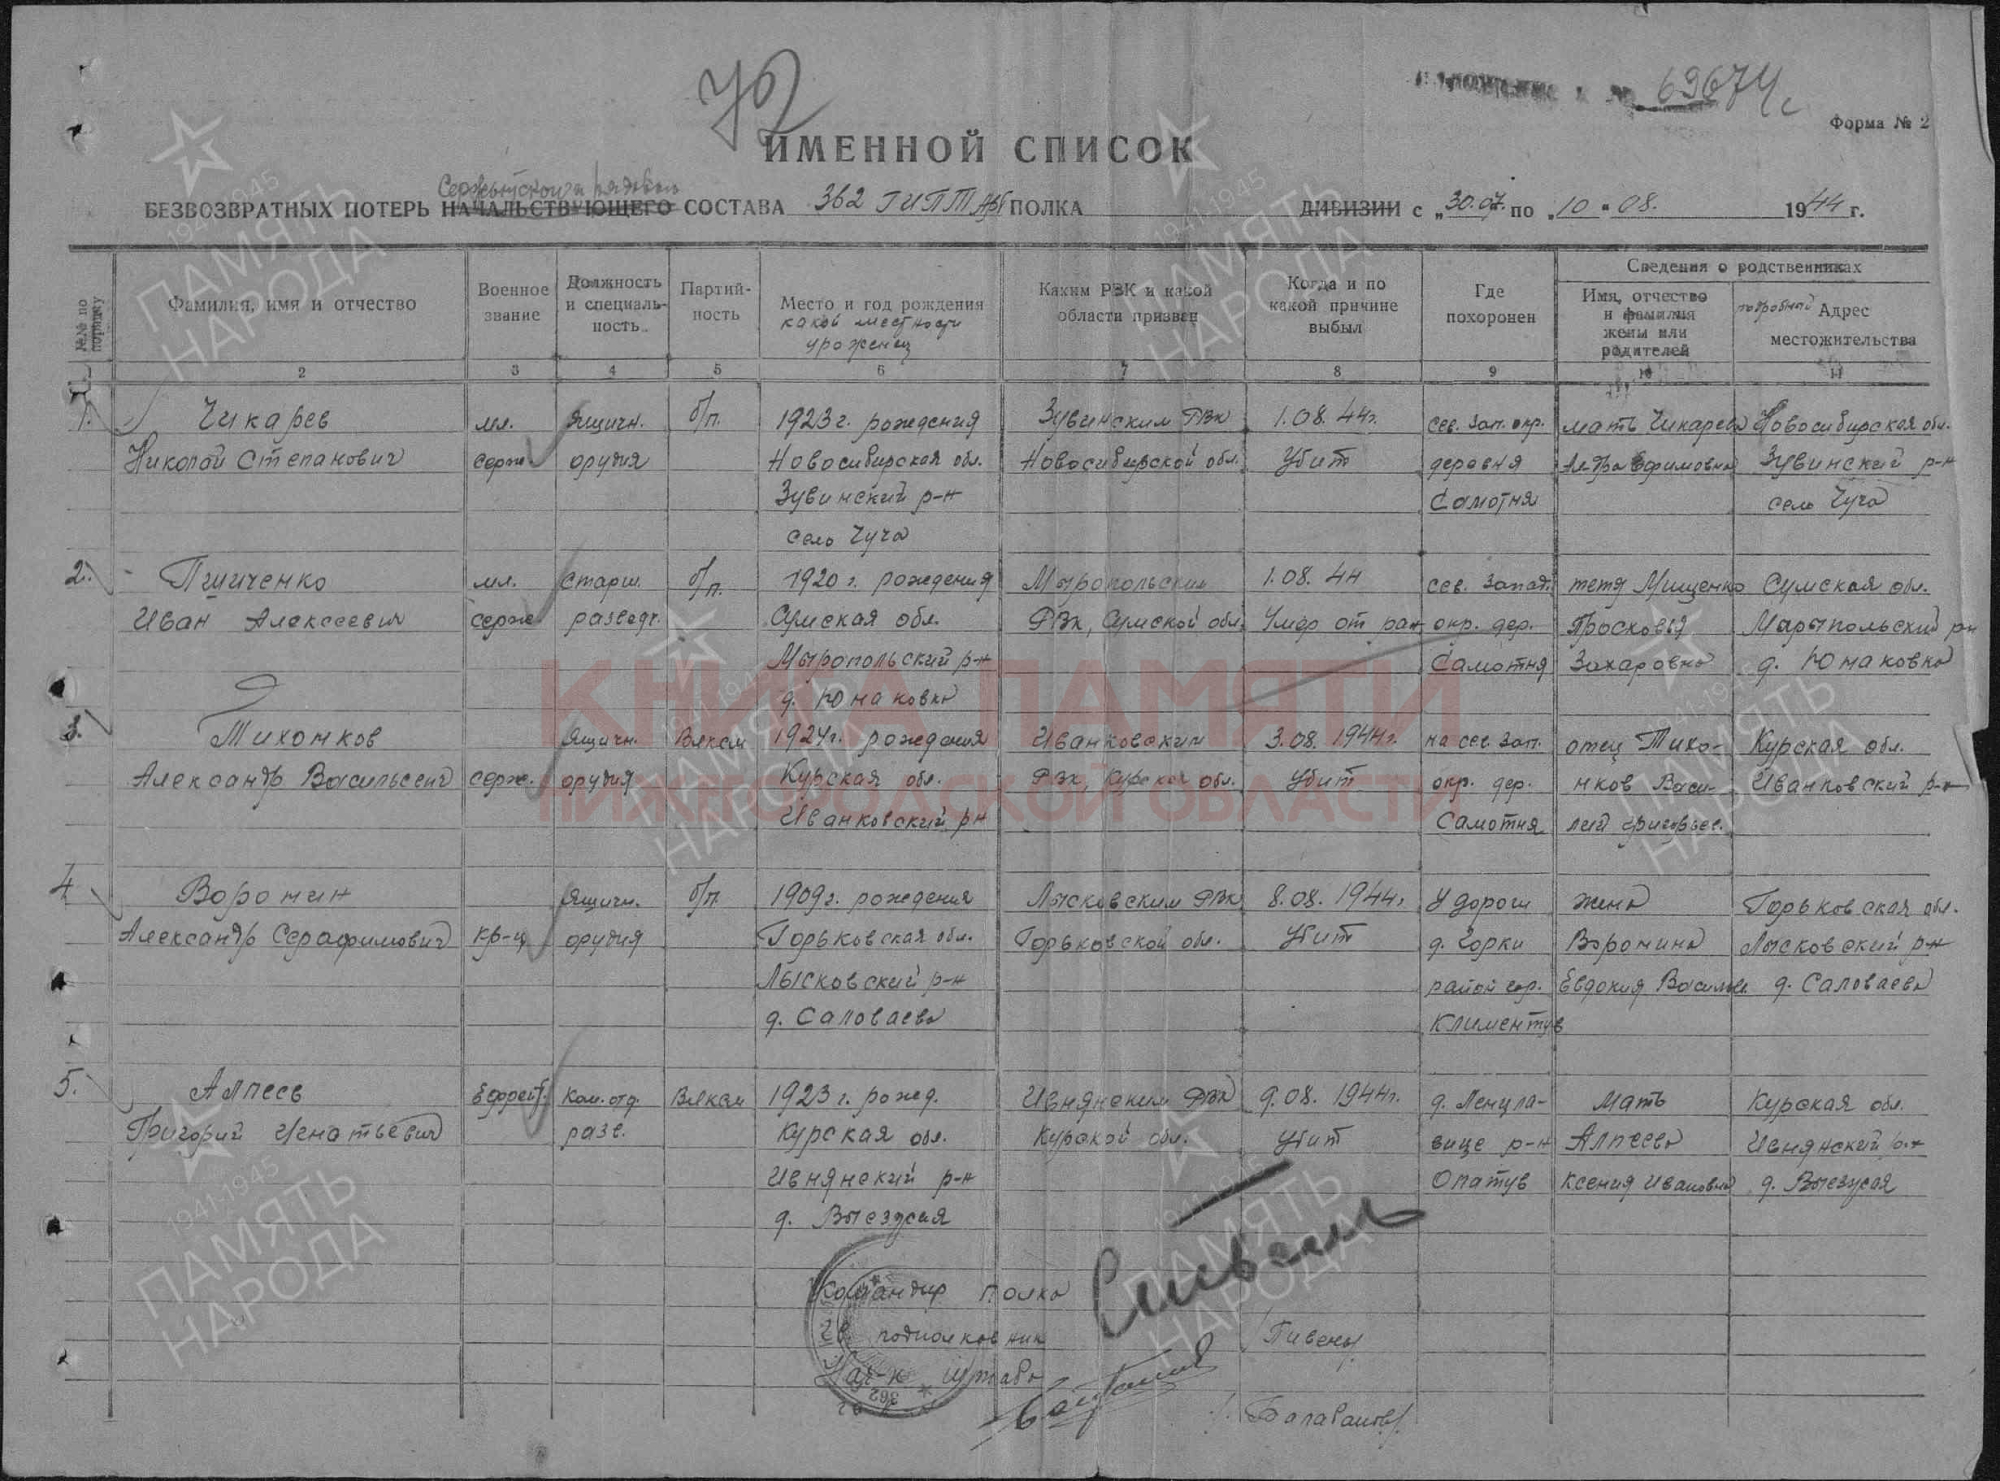 72
69674с
Форма № 2
ИМЕННОЙ СПИСОК
Сержантского и рядового
БЕЗВОЗВРАТНЫХ ПОТЕРЬ НАЧАЛЬСТВУЮЩЕГО СОСТАВА 362 ГИПТАП ПОЛКА ДИВИЗИИ с „30.07. по „10" 08. 1944 г.
№№ по порядку
Фамилия, имя и отчество
Военное звание
Должность и специаль-ность
Партий-ность
Место и год рождения
какой местности уроженец
Каким РВК и какой области призван
Когда и по какой причине выбыл
Где похоронен
Сведения о родственниках
Имя, отчество и фамилия жены или родителей
подробный Адрес местожительства
2 3 4 5 6 7 8 9 10 11
1. Чикарев мл. Ящичн. б/п. 1923 г. рождения Зувинским РВК 1.08.44г. сев. зап. окр. мать Чикарева Новосибирская обл.
Николай Степанович серж. орудия Новосибирская обл. Новосибирской обл. Убит деревня Ефимовна Зувинский р-н
Зувинский р-н Самотня село Чуча
село Чуча
2. Пщиченко мл. старш. б/п. 1920 г. рождения Мыропольским 1.08.44 сев. запад. тетя Мищенко Сумская обл.
Иван Алексеевич серж. разведч. Сумская обл. РВК, Сумской обл. Умер от ран окр. дер. Просковья Марыпольский р-н
Мыропольский р-н Самотня Захаровна д. Юнаковка
д. Юнаковка
3. Тихонков Ящичн. Влксм 1924г. рождения Иванковским 3.08.1944г. на сев. зап. отец Тихо-
Курская обл.
Александр Васильевич серж. орудия Курская обл. РВК, Курской обл. убит окр. дер. нков Васи- Иванковский р-н
Иванковский р-н Самотня лий Григорьев.
4 Воронин Ящичн. б/п 1909г. рождения Лысковским РВК 8.08.1944г. У дороги жена Горьковская обл.
Александр Серафимович кр-ц орудия Горьковская обл. Горьковской обл. убит д. Горки Воронина Лысковский р-н
Лысковский р-н район гор. Евдокия Васильев д. Саловаева
д. Саловаева Климентув
5. Алпеев Ефрейт. Ком. отд. Влксм 1923 г. рожд. Ивнянским РВК 9.08.1944г. д. Ленцла- мать Курская обл.
Григорий Игнатьевич разв. Курская обл. Курской обл. убит вице р-н Алпеева Ивнянский р-н
Ивнянский р-н Опатув Ксения Ивановна д. Выезская
д. Выезская
Командир полка
гв подполковник /Пивень/
Нач-к штаба /Балабанов/
362
КНИГА ПАМЯТИ
НИЖЕГОРОДСКОЙ ОБЛАСТИ
1941-1945
ПАМЯТЬ
НАРОДА
1941-1945
ПАМЯТЬ
НАРОДА
1941-1945
ПАМЯТЬ
НАРОДА
1941-1945
ПАМЯТЬ
НАРОДА
1941-1945
ПАМЯТЬ
НАРОДА
1941-1945
ПАМЯТЬ
НАРОДА